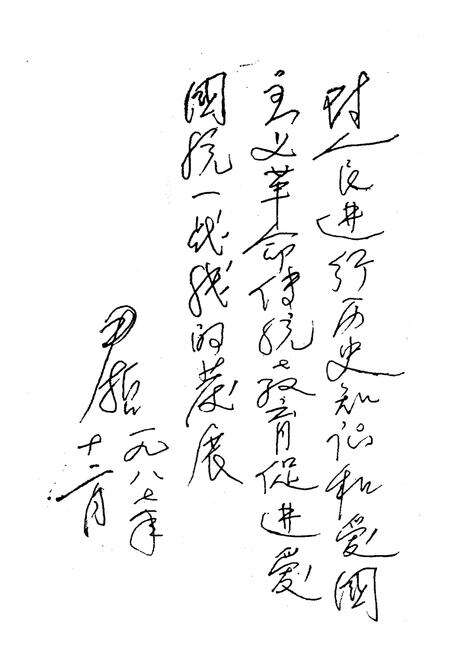 对人民进行历史知识和爱國
主义革命传统教育促进爱
國统一战线的发展
尹哲
一九八七年
十二月